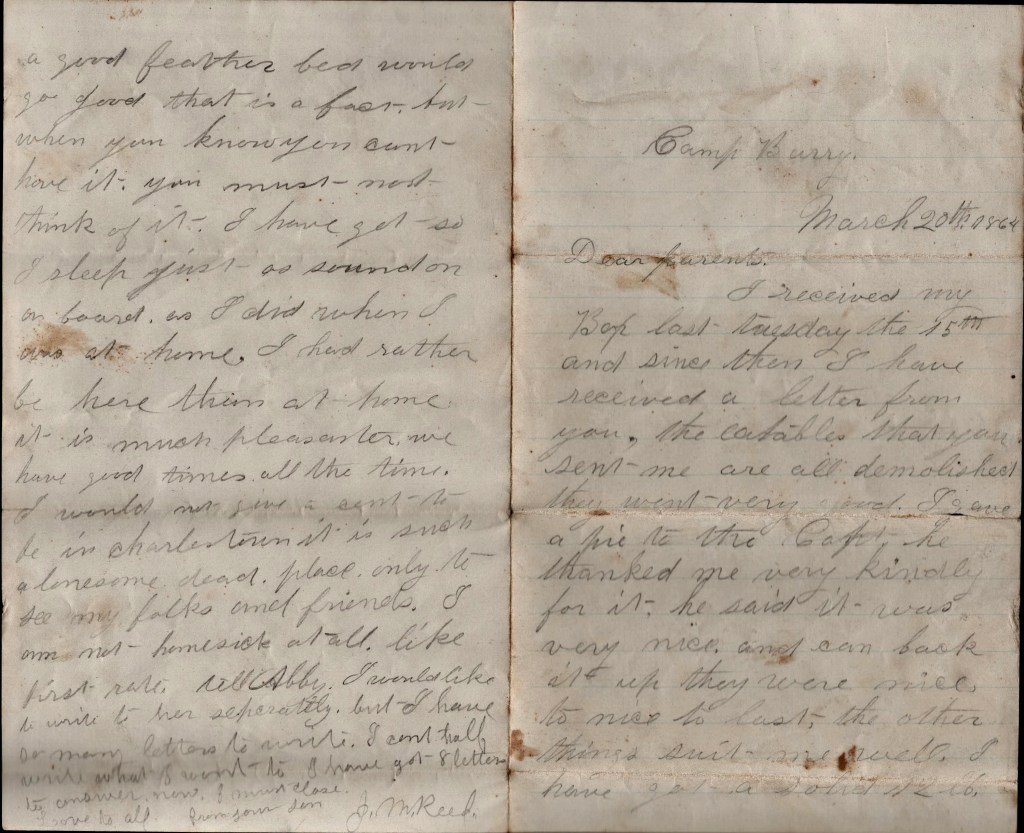 Camp Barry.
March 20th. 1864
Dear parents.
I received my
Box last tuesday the 15th
and since then I have
received a letter from
you, the eatables that you
sent me are all demolished
they went very good. I gave
a pie to the Capt, he
thanked me very kindly
for it, he said it was
very nice. and can back
it up they were nice,
to nice to last, the other
things suit me well. I
have got a solid
a good feather bed would
go good that is a fact, but
when you know you cant
have it. you must not
think of it. I have got so
I sleep just as sound on
a board. as I did when I
was at home. I had rather
be here than at home
it is much pleasanter, we
have good times all the time.
I would not give a cent to
be in charlestown it is such
a lonesome. dead. place. only to
see my folks and friends. I
am not homesick at all. like
first rate. tell Abby. I would like
to write to her seperatly. but I have
so many letters to write. I cant half
write what I want to I have got 8 letters
to answer now. I must close.
Love to all. from your son
J. M. Reed.